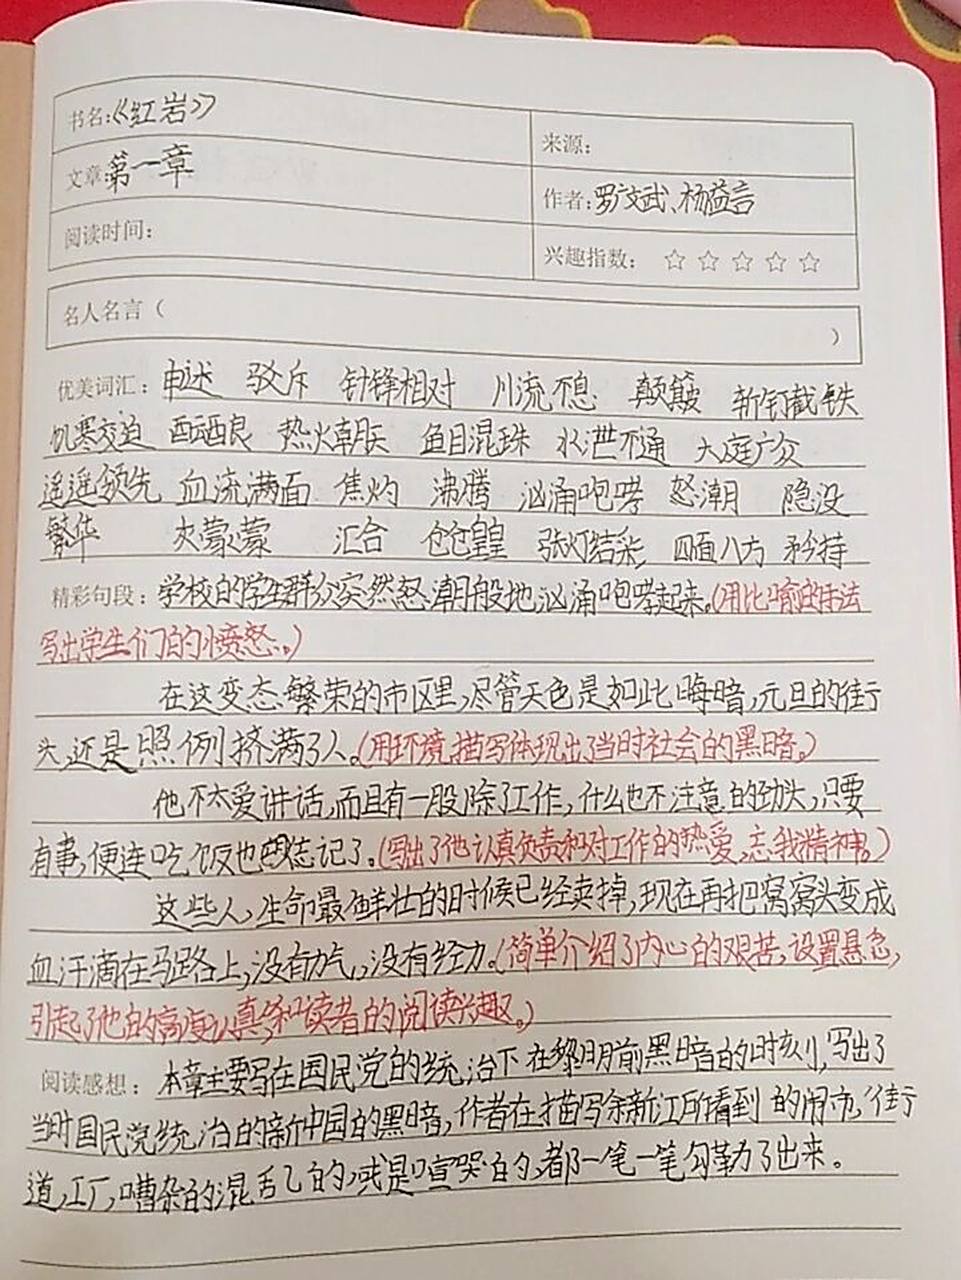 书名:《红岩》
来源:
文章:第一章
作者:罗广斌、杨益言
阅读时间:
兴趣指数: ☆ ☆ ☆ ☆ ☆
名人名言（ ）
优美词汇: 申述 驳斥 针锋相对 川流不息 颠簸 斩钉截铁
饥寒交迫 热火朝天 鱼目混珠 水泄不通 大庭广众
遥遥领先 血流满面 焦灼 沸腾 汹涌咆哮 怒潮 隐没
繁华 灰蒙蒙 汇合 仓仓皇皇 张灯结采 四面八方 矜持
精彩句段: 学校的学生群众突然怒潮般地汹涌咆哮起来。(用比喻的手法
写出学生们的愤怒。)
在这变态繁荣的市区里,尽管天色是如此晦暗,元旦的街
头,还是照例挤满了人。(用环境描写体现出了当时社会的黑暗。)
他不太爱讲话,而且有一股除了工作,什么也不注意的劲头,只要
有事,便连吃饭也忘记了。(写出了他认真负责和对工作的热爱,忘我精神。)
这些人,生命最鲜壮的时候已经卖掉,现在再把窝窝头变成
血汗滴在马路上,没有力气,没有经力。(简单介绍了内心的艰苦,设置悬念,
引起了他的高度认真和读者的阅读兴趣。)
阅读感想: 本章主要写在国民党的统治下在黎明前黑暗的时刻,写出了
当时国民党统治的新中国的黑暗,作者在描写余新江所看到的闹市,街
道,工厂,嘈杂的混乱的,或是喧哭的,都一笔一笔勾勒了出来。